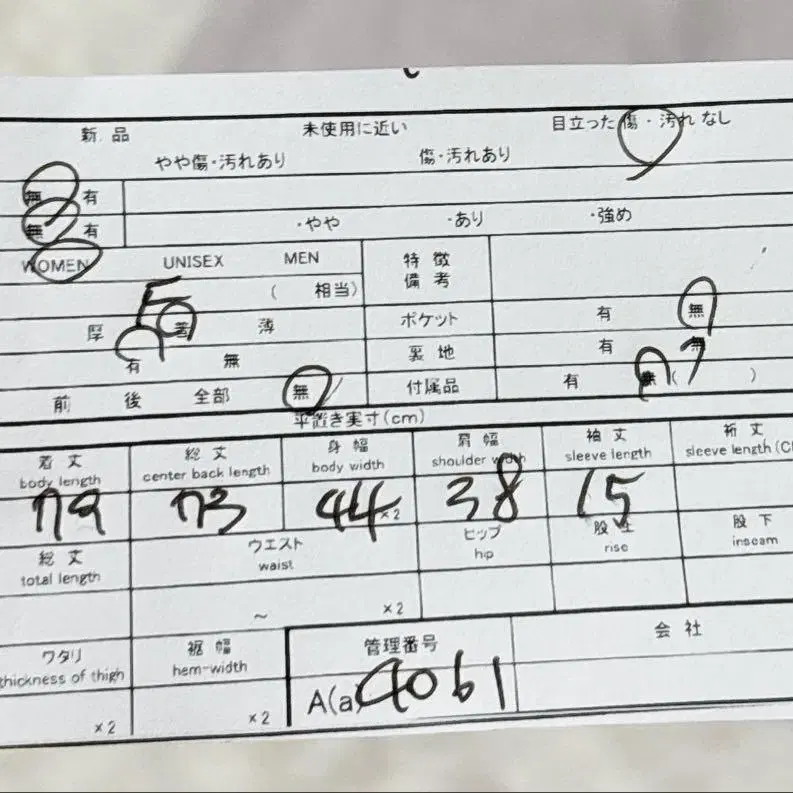 新品 未使用に近い 目立った傷・汚れなし
やや傷・汚れあり 傷・汚れあり
無 有
無 有 ・やや ・あり ・強め
WOMEN UNISEX MEN 特徴
備考
( 相当)
厚 普 薄 ポケット 有 無
有 無 裏地 有 無
前 後 全部 無 付属品 有 無( )
平置き実寸(cm)
着丈 総丈 身幅 肩幅 袖丈 裄丈
body length center back length body width shoulder width sleeve length sleeve length(C
79 73 44 ×2 38 15
総丈 ウエスト ヒップ 股上 股下
total length waist hip rise inseam
~ ×2
ワタリ 裾幅 管理番号 会社
thickness of thigh hem-width
×2 ×2 A(a) 4061